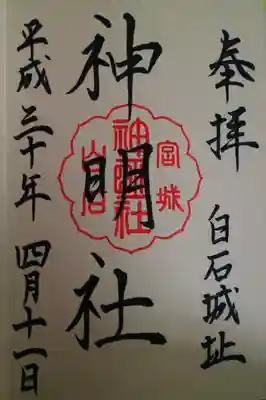 奉拝 白石城址
神明社
平成三十年 四月十一日
宮城
神明社
白石